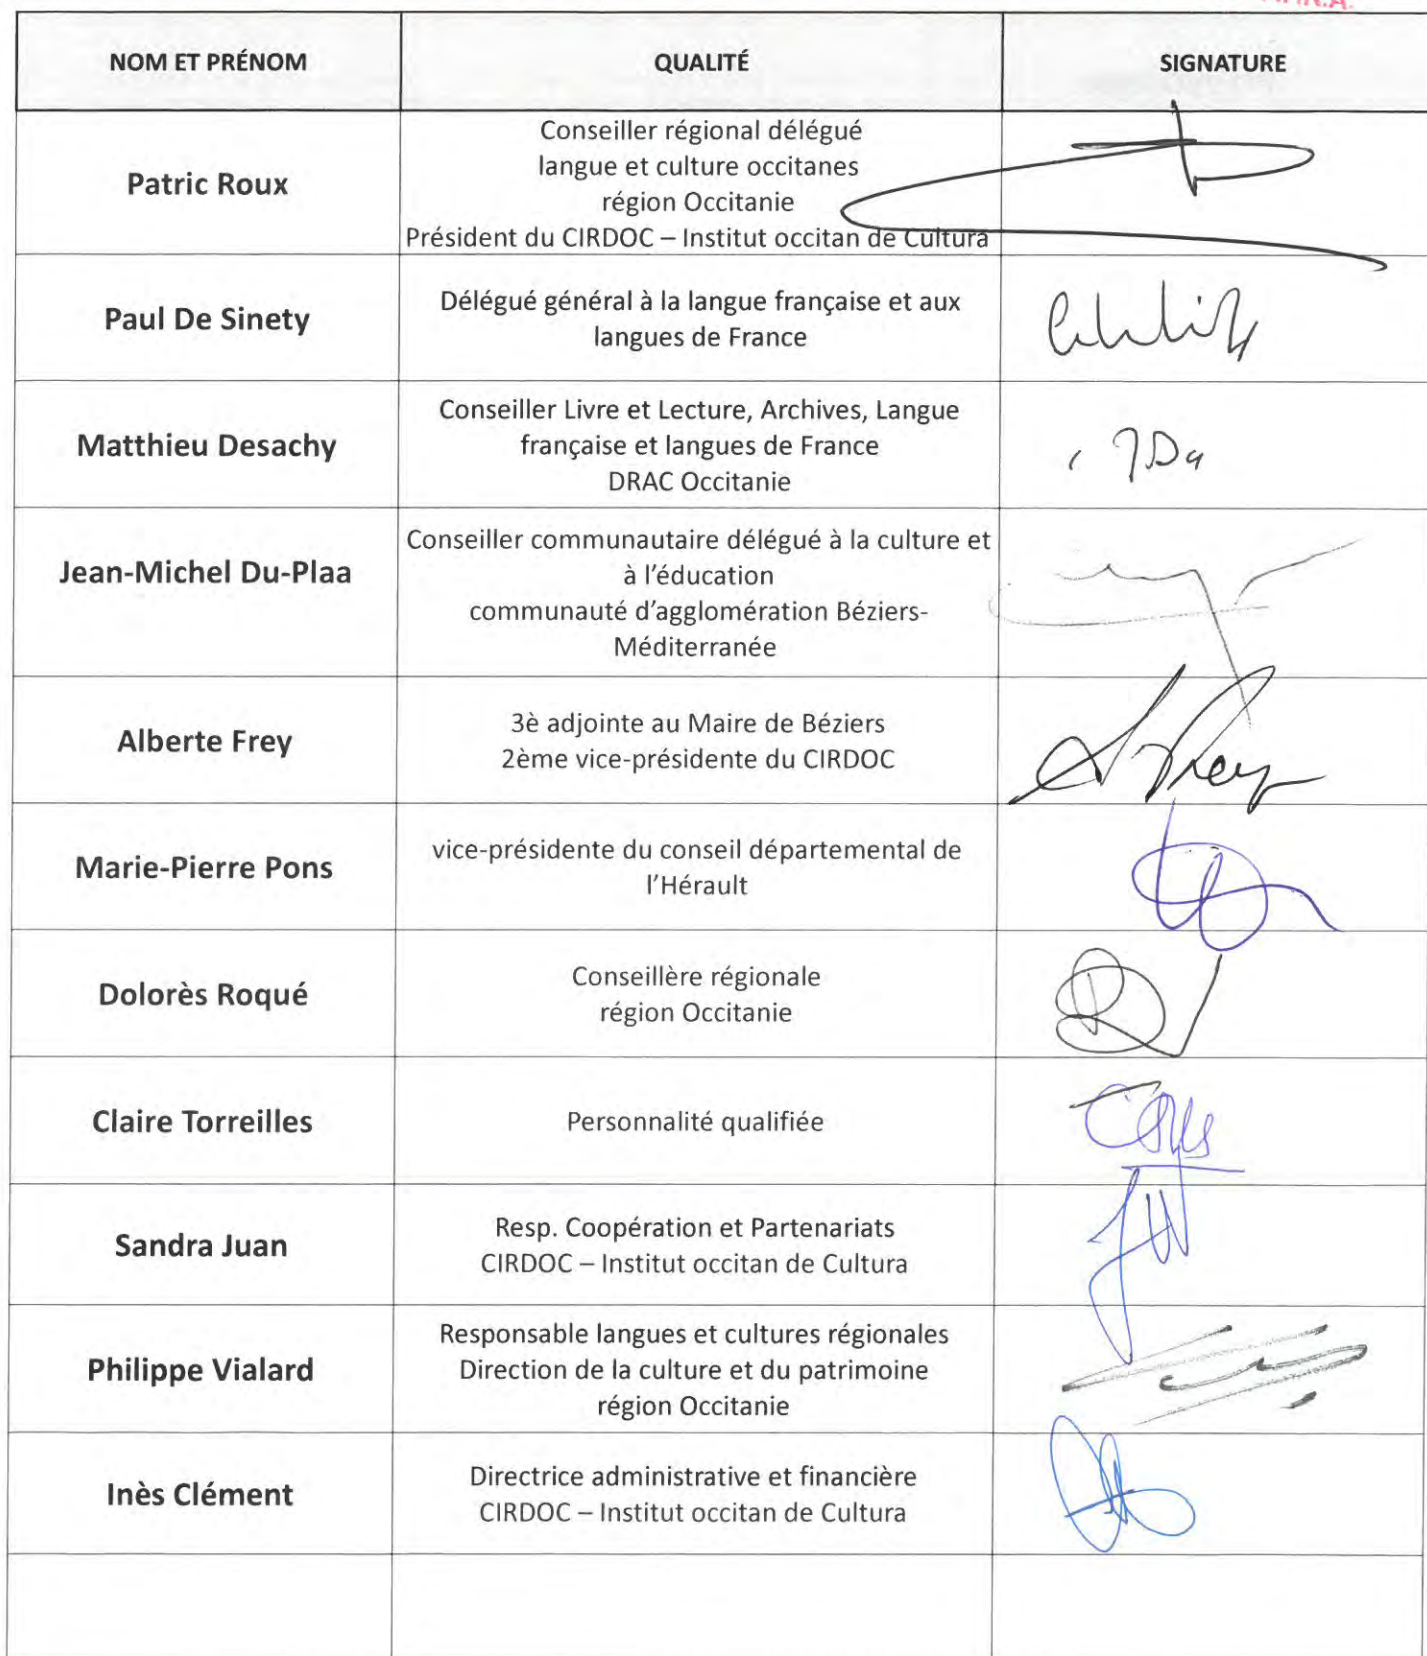 NOM ET PRÉNOM QUALITÉ SIGNATURE
Patric Roux
Conseiller régional délégué
langue et culture occitanes
région Occitanie
Président du CIRDOC – Institut occitan de Cultura
Paul De Sinety
Délégué général à la langue française et aux
langues de France
Matthieu Desachy
Conseiller Livre et Lecture, Archives, Langue
française et langues de France
DRAC Occitanie
Jean-Michel Du-Plaa
Conseiller communautaire délégué à la culture et
à l'éducation
communauté d'agglomération Béziers-
Méditerranée
Alberte Frey
3è adjointe au Maire de Béziers
2ème vice-présidente du CIRDOC
Marie-Pierre Pons
vice-présidente du conseil départemental de
l'Hérault
Dolorès Roqué
Conseillère régionale
région Occitanie
Claire Torreilles
Personnalité qualifiée
Sandra Juan
Resp. Coopération et Partenariats
CIRDOC – Institut occitan de Cultura
Philippe Vialard
Responsable langues et cultures régionales
Direction de la culture et du patrimoine
région Occitanie
Inès Clément
Directrice administrative et financière
CIRDOC – Institut occitan de Cultura